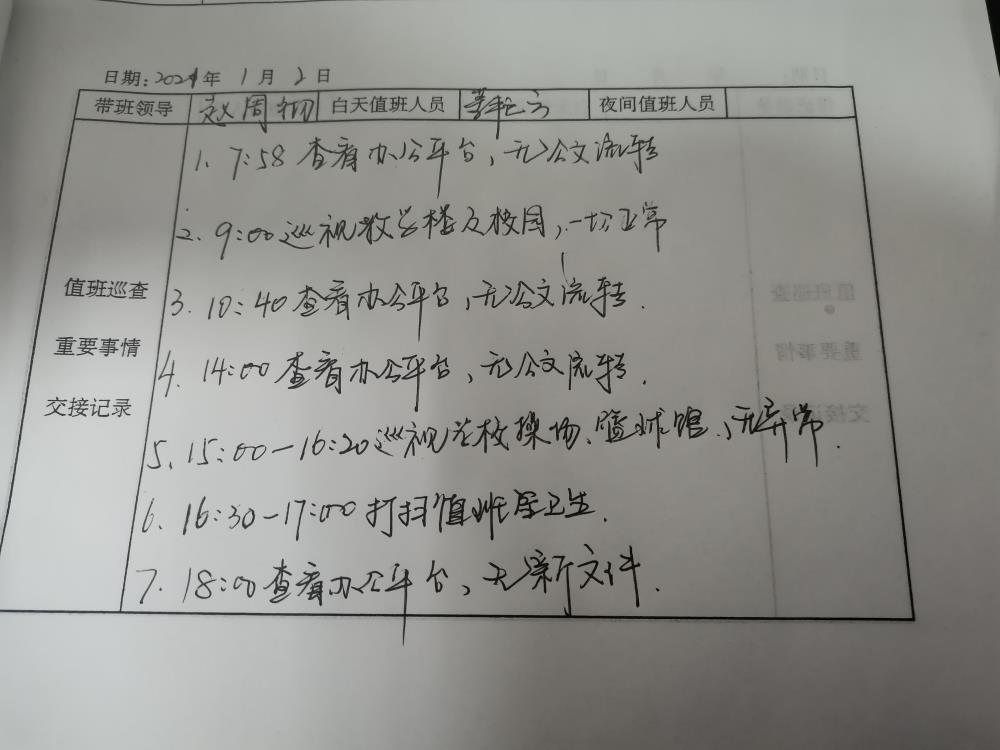 日期：2021年 1 月 2 日
带班领导 赵周 白天值班人员 夜间值班人员
1. 7:58 查看办公平台，无公文流转
2. 9:00 巡视教学楼及校园，一切正常
值班巡查
3. 10:40 查看办公平台，无公文流转.
重要事情
4. 14:00 查看办公平台，无公文流转.
交接记录
5. 15:00-16:20 巡视学校操场、篮球馆，无异常.
6. 16:30-17:00 打扫值班室卫生.
7. 18:00 查看办公平台，无新文件.